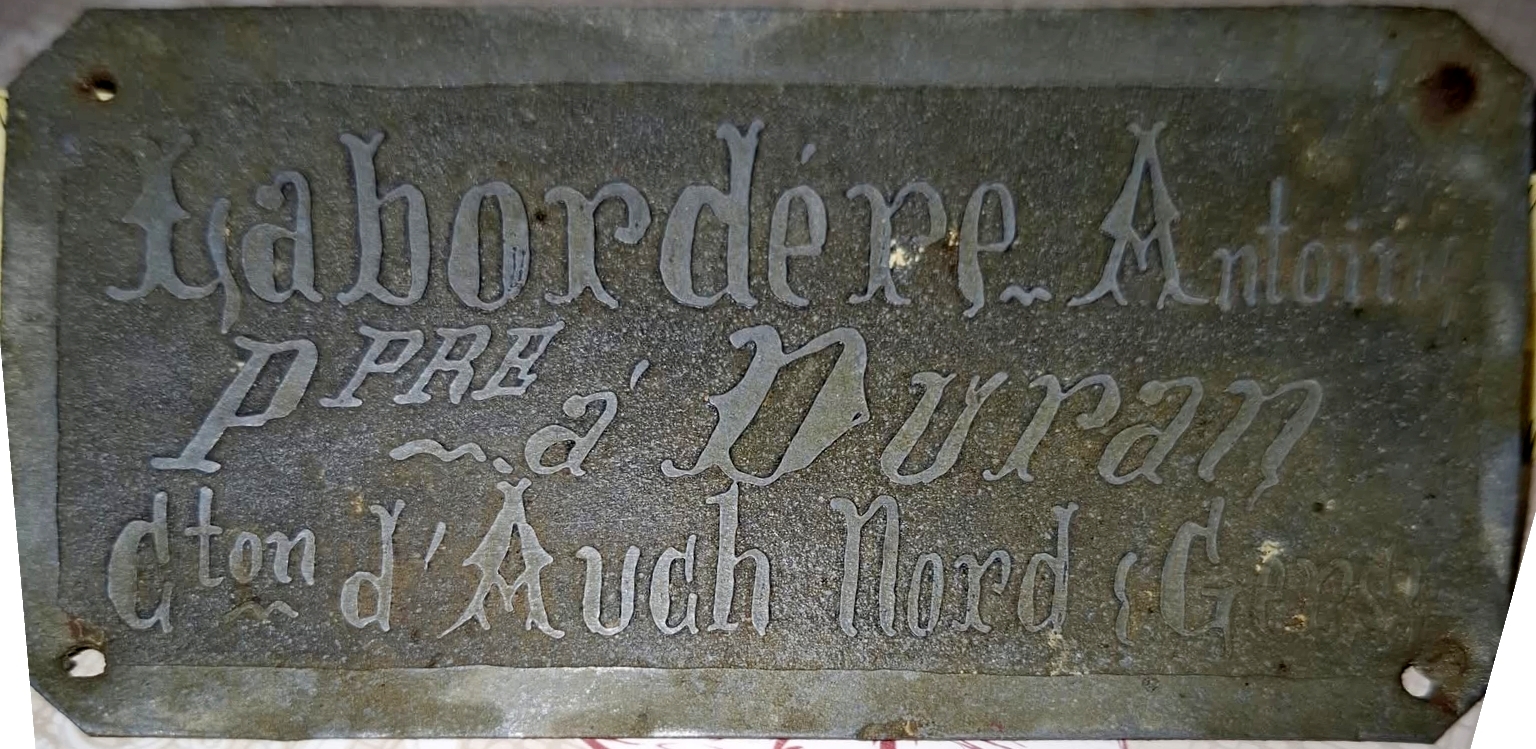 Labordére ~ Antoine
PPRE ~ á Duran
Cton d'Auch Nord (Gers)